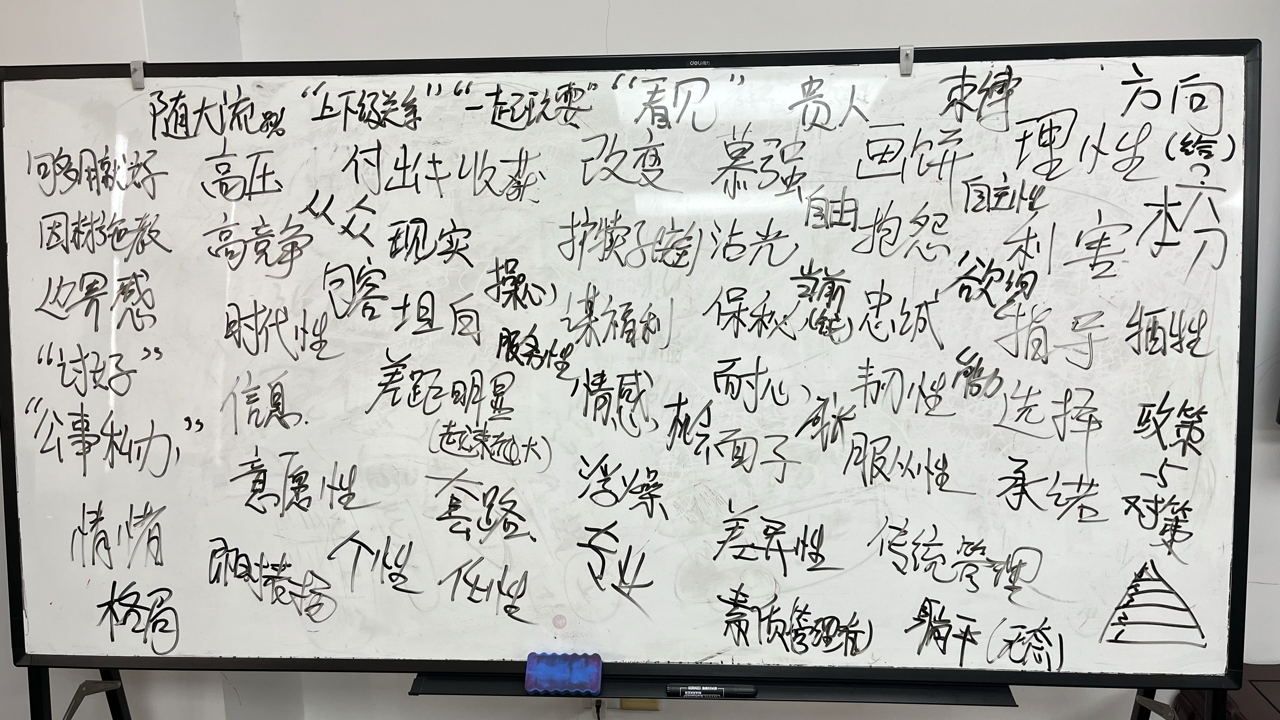 deli
随大流 “上下级关系” “一起玩耍” “看见” 贵人 束缚 方向
够多用就好 高压 付出 收获 改变 慕强 画饼 理性 (给)
因材施教 高竞争 从众 现实 护犊子 沾光 自由 抱怨 自主性 利害 本分
边界感 时代性 包容 坦白 操心 谋福利 保秘 当前 忠诚 欲望 指导 牺牲
“讨好” 信息 差距明显 服务性 情感 耐心 韧性 能力 选择 政策
“公事私办” (越来越大) 机会 面子 成长 服从性 与
意愿性 套路 浮躁 承诺 对策
情绪 个性 任性 专业 差异性 传统管理
格局 素质(管理者) 躺平(无态)